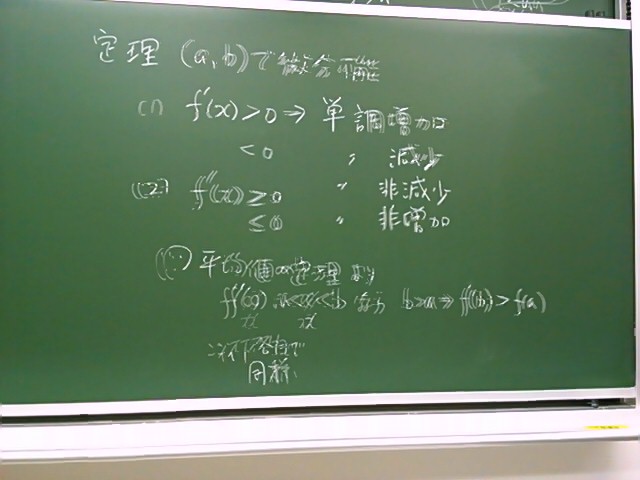 定理 (a, b)で微分可能
(1) f'(x)>0 ⇒ 単調増加
<0 〃 減少
(2) f'(x)≧0 〃 非減少
≦0 〃 非増加
(∵) 平均値の定理より
b>a ⇒ f(b)>f(a)
同様